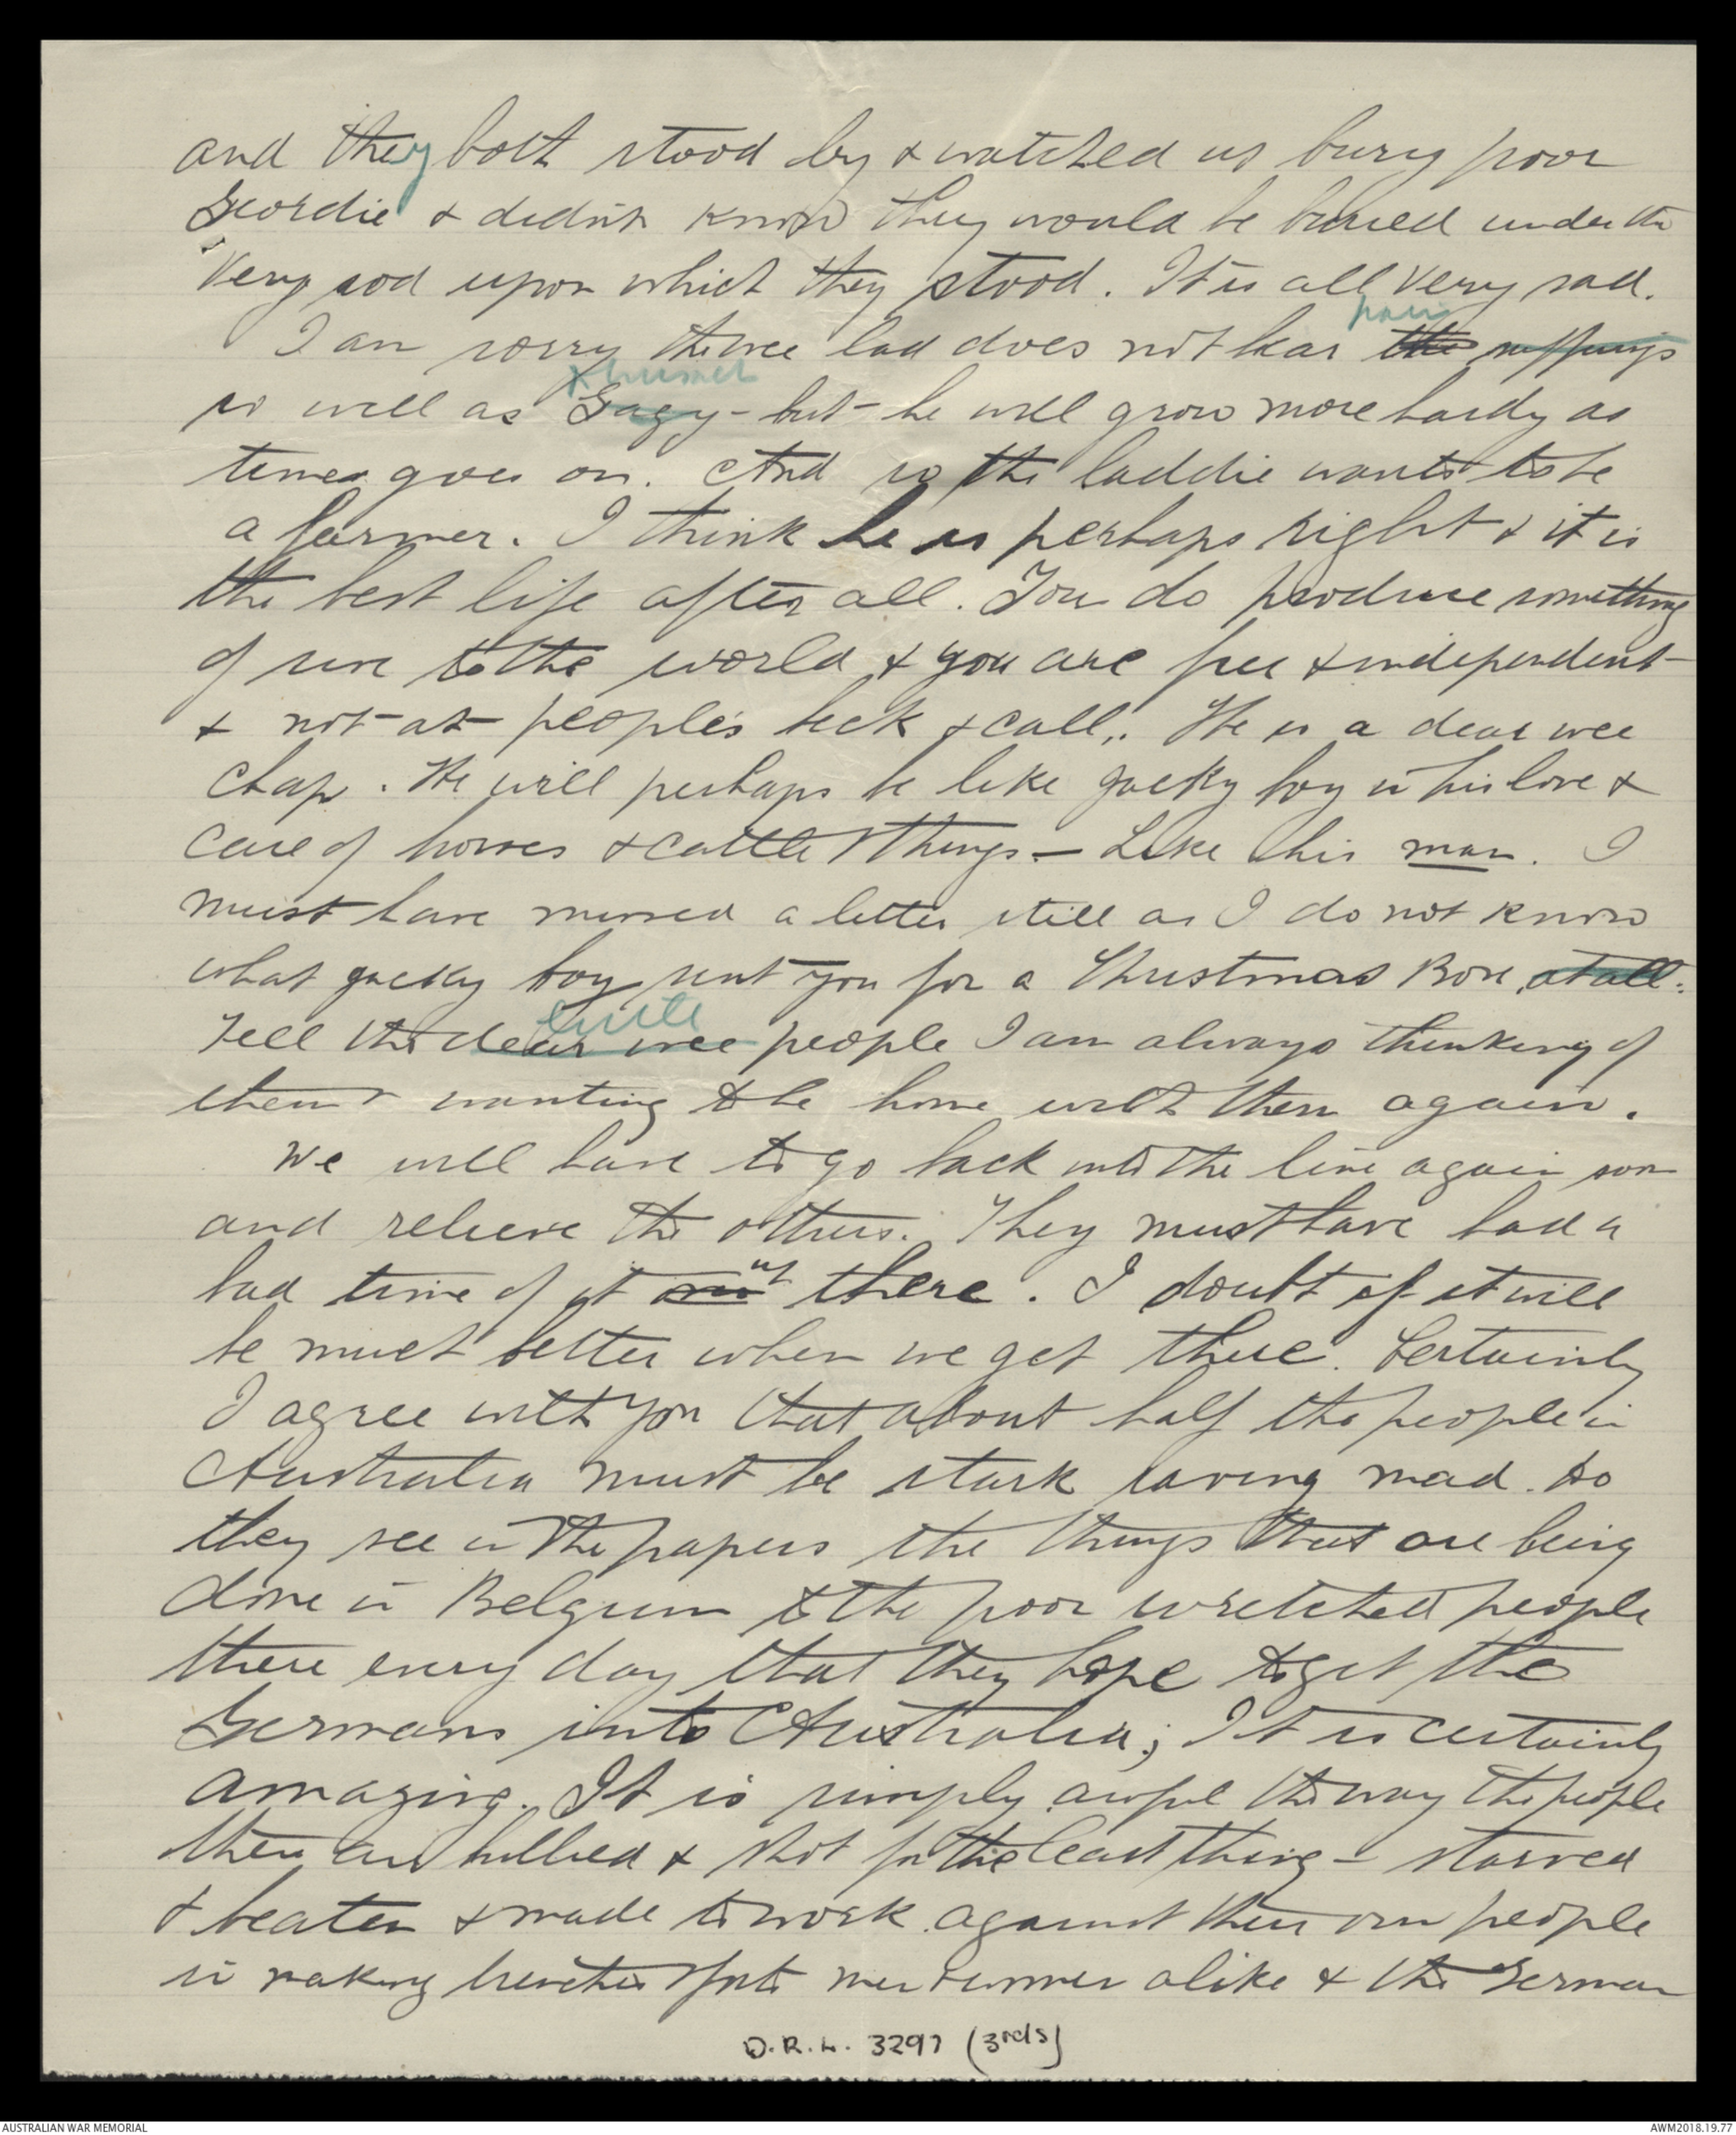 and they both stood by & watched us bury poor
Geordie & didn't know they would be buried under the
very sod upon which they stood. It is all very sad.
pain
I am sorry the wee lad does not bear the sufferings
x
so well as Gagy - but he will grow more hardy as
times goes on. And so the laddie wants to be
a farmer. I think he is perhaps right & it is
the best life after all. You do produce something
of use to the world & you are free & independent
& not at people's beck & call. He is a dear wee
chap. He will perhaps be like Jacky boy in his love &
care of horses & cattle & things - Like his man. I
must have missed a letter still as I do not know
what Jacky boy sent you for a Christmas Box at all.
little
Tell the dear wee people I am always thinking of
them & wanting to be home with them again.
We will have to go back into the line again soon
and relieve the others. They must have had a
bad time of it up there. I doubt if it will
be much better when we get there. Certainly
I agree with you that about half the people in
Australia must be stark raving mad. Do
they see in the papers the things that are being
done in Belgium to the poor wretched people
there every day that they hope to get the
Germans into Australia; It is certainly
amazing. It is simply awful the way the people
there are bullied & shot for the least thing - starved
& beaten & made to work against their own people
in making trenches & forts men & women alike & the German
D.R.L. 3297 (3rds)
AUSTRALIAN WAR MEMORIAL
AWM2018.19.77